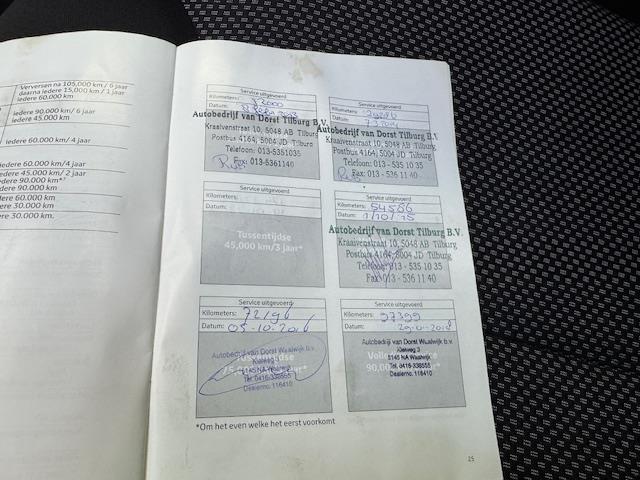 Verversen na 105.000 km / 6 jaar
daarna iedere 15.000 km / 1 jaar
iedere 60.000 km
iedere 90.000 km/ 6 jaar
iedere 45.000 km
iedere 60.000 km / 4 jaar
iedere 60.000 km/4 jaar
iedere 45.000 km/ 2 jaar
iedere 90.000 km*²
iedere 90.000 km
iedere 60.000 km
iedere 30.000 km
iedere 30.000 km.
Service uitgevoerd
Kilometers:
Datum:
Autobedrijf van Dorst Tilburg B.V.
Kraaivenstraat 10, 5048 AB Tilburg
Postbus 4164, 5004 JD Tilburg
Telefoon: 013-5351035
Fax: 013-5361140
Service uitgevoerd
Kilometers:
Datum:
Autobedrijf van Dorst Tilburg B.V.
Kraaivenstraat 10, 5048 AB Tilburg
Postbus 4164, 5004 JD Tilburg
Telefoon: 013 - 535 10 35
Fax: 013 - 536 11 40
Service uitgevoerd
Kilometers:
Datum:
Tussentijdse
45,000 km/3 jaar*
Service uitgevoerd
Kilometers: 54586
Datum: 1/10/15
Autobedrijf van Dorst Tilburg B.V.
Kraaivenstraat 10, 5048 AB Tilburg
Postbus 4164, 5004 JD Tilburg
Telefoon: 013 - 535 10 35
Fax: 013 - 536 11 40
Service uitgevoerd
Kilometers: 72196
Datum: 05-10-2016
Autobedrijf van Dorst Waalwijk b.v.
Kleiweg 3
5145 NA Waalwijk
Tel. 0416-338555
Dealerno. 116410
Service uitgevoerd
Kilometers: 97399
Datum:
Autobedrijf van Dorst Waalwijk b.v.
Kleiweg 3
5145 NA Waalwijk
Tel. 0416-338555
Dealerno. 116410
*Om het even welke het eerst voorkomt
25